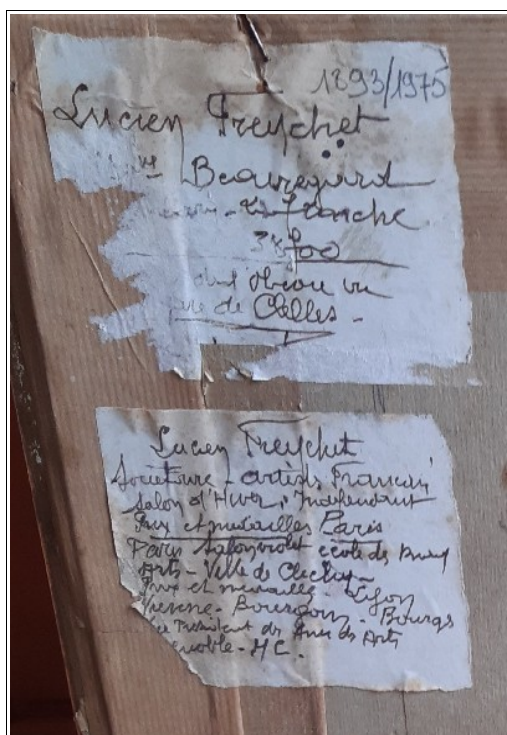 1893/1975
Lucien Freychet
Beauregard
franche
38500
obiou vu
de Clelles -
Lucien Freychet
Societaire - artistes Francais
Salon d'Hiver, Independant
Prix et medailles Paris
Paris violet ecole des Beaux
Arts - Ville de Clichy -
Prix et medaille - Lyon
Vienne - Bourgoin - Bourges
President des Amis des Arts
Grenoble - HC.